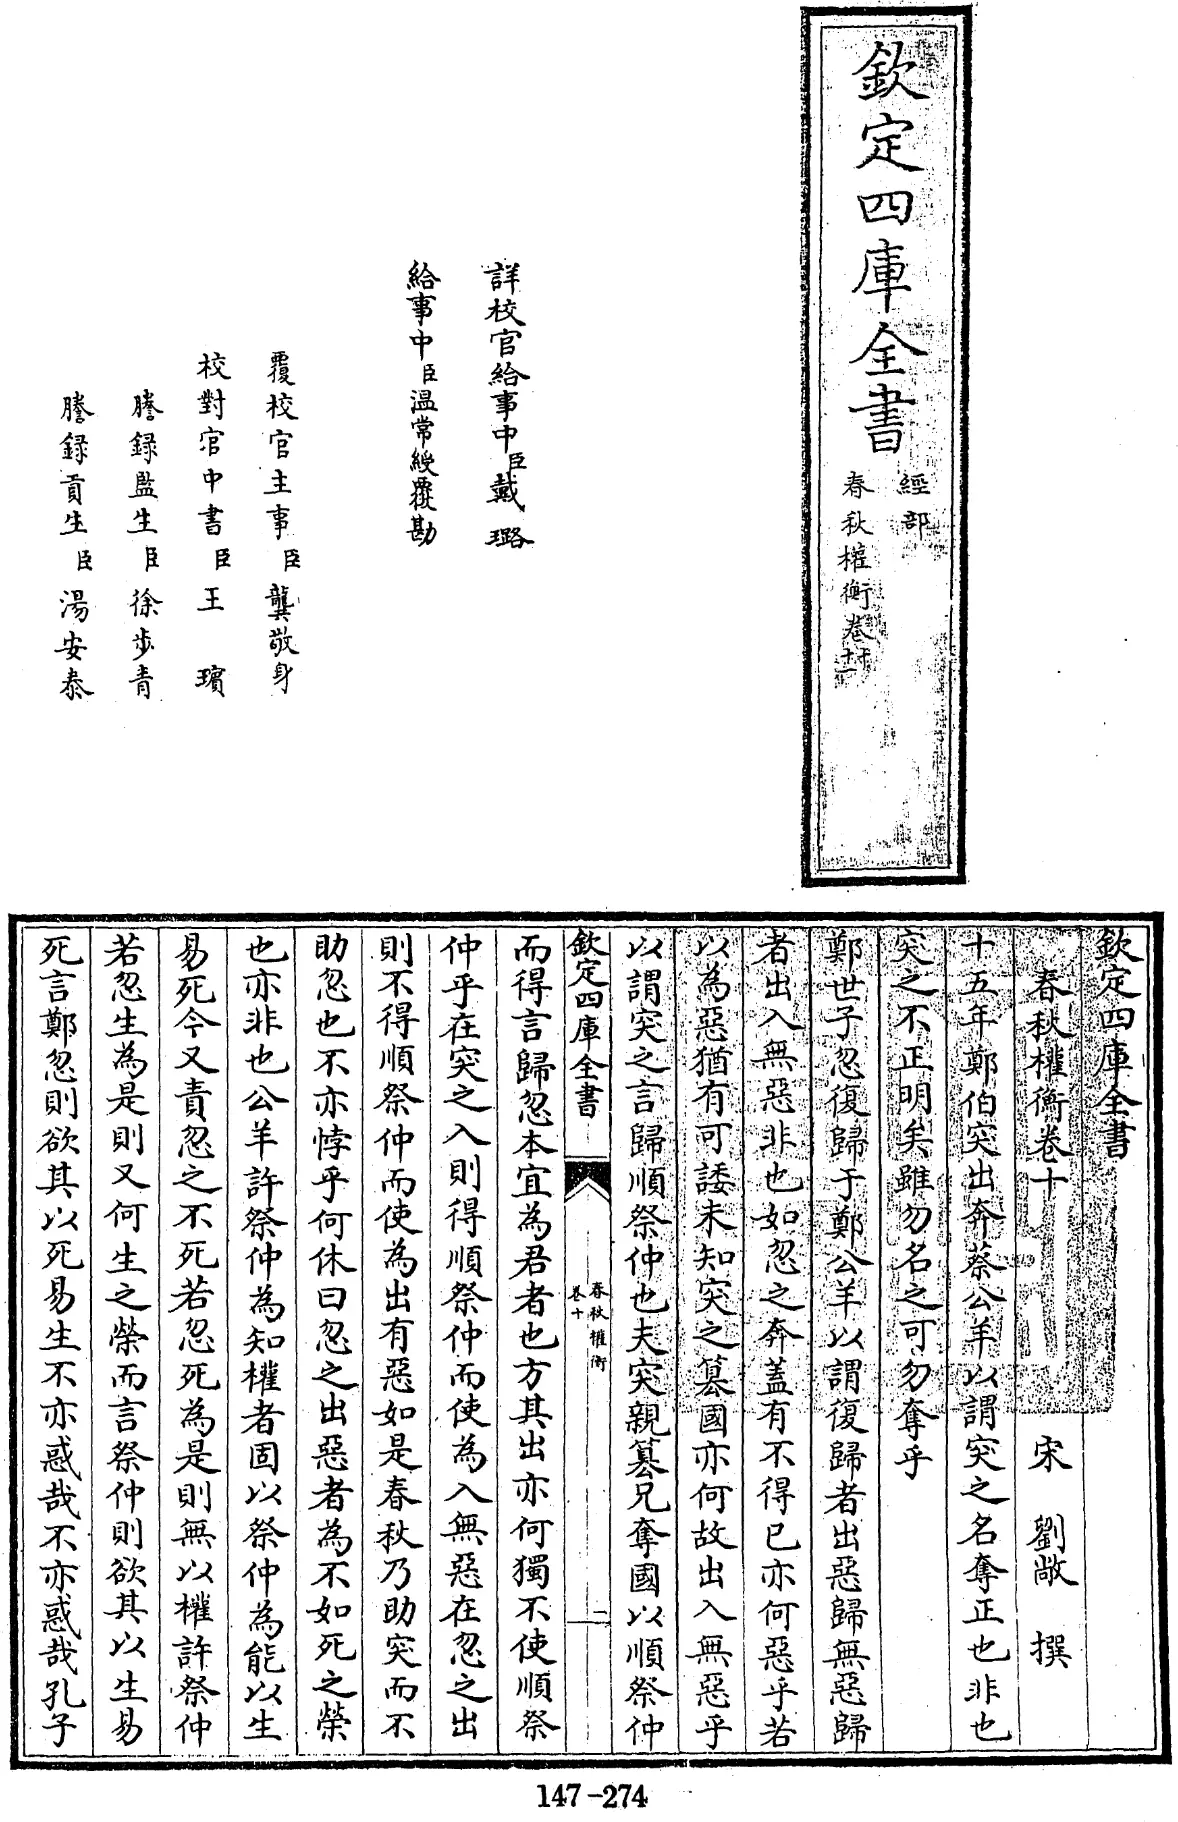 欽定四庫全書
經部
春秋權衡卷十
十一
詳校官給事中臣戴璐
給事中臣溫常綬覆勘
覆校官主事臣龔敬身
校對官中書臣王璸
謄錄監生臣徐步青
謄錄貢生臣湯安泰
欽定四庫全書
春秋權衡卷十
宋 劉敞 撰
十五年鄭伯突出奔蔡公羊以謂突之名奪正也非也
突之不正明矣雖勿名之可勿奪乎
鄭世子忽復歸于鄭公羊以謂復歸者出惡歸無惡歸
者出入無惡非也如忽之奔蓋有不得已亦何惡乎若
以為惡猶有可諉未知突之篡國亦何故出入無惡乎
以謂突之言歸順祭仲也夫突親篡兄奪國以順祭仲
欽定四庫全書
春秋權衡
卷十
二
而得言歸忽本宜為君者也方其出亦何獨不使順祭
仲乎在突之入則得順祭仲而使為入無惡在忽之出
則不得順祭仲而使為出有惡如是春秋乃助突而不
助忽也不亦悖乎何休曰忽之出惡者為不如死之榮
也亦非也公羊許祭仲為知權者固以祭仲為能以生
易死今又責忽之不死若忽死為是則無以權許祭仲
若忽生為是則又何生之榮而言祭仲則欲其以生易
死言鄭忽則欲其以死易生不亦惑哉不亦惑哉孔子
147-274